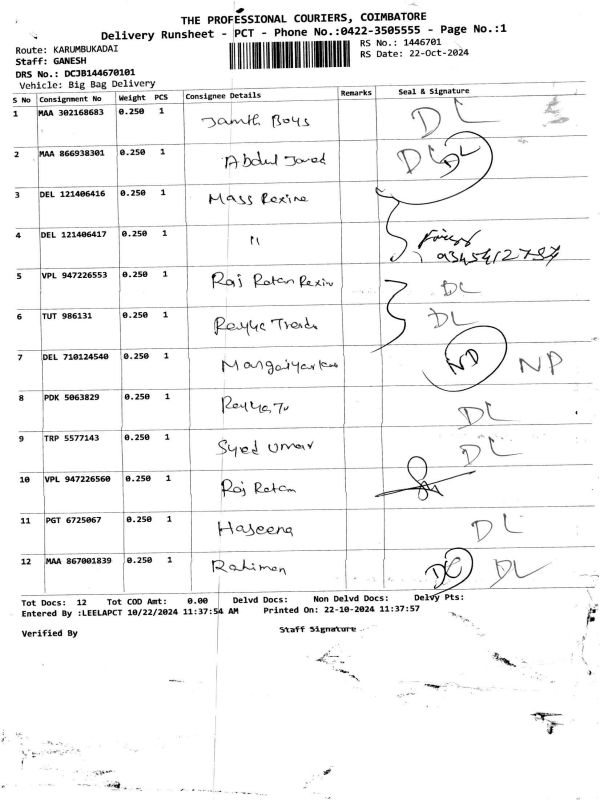 THE PROFESSIONAL COURIERS, COIMBATORE
Delivery Runsheet - PCT - Phone No.:0422-3505555 - Page No.:1
Route: KARUMBUKADAI
RS No.: 1446701
Staff: GANESH
RS Date: 22-Oct-2024
DRS No.: DCJB144670101
Vehicle: Big Bag Delivery
S No Consignment No Weight PCS Consignee Details Remarks Seal & Signature
1 MAA 302168683 0.250 1 Boys DL
2 MAA 866938301 0.250 1 Abdul Javed DL DL
3 DEL 121406416 0.250 1 Mass Rexine
4 DEL 121406417 0.250 1 11
5 VPL 947226553 0.250 1 Raj Ratan Rexin DL
6 TUT 986131 0.250 1 DL
7 DEL 710124540 0.250 1 ND NP
8 PDK 5063829 0.250 1 DL
9 TRP 5577143 0.250 1 Syed Umar DL
10 VPL 947226560 0.250 1 Raj Ratan
11 PGT 6725067 0.250 1 Haseena DL
12 MAA 867001839 0.250 1 Rahiman DL DL
Tot Docs: 12 Tot COD Amt: 0.00 Delvd Docs: Non Delvd Docs: Delvy Pts:
Entered By :LEELAPCT 10/22/2024 11:37:54 AM Printed On: 22-10-2024 11:37:57
Verified By Staff Signature